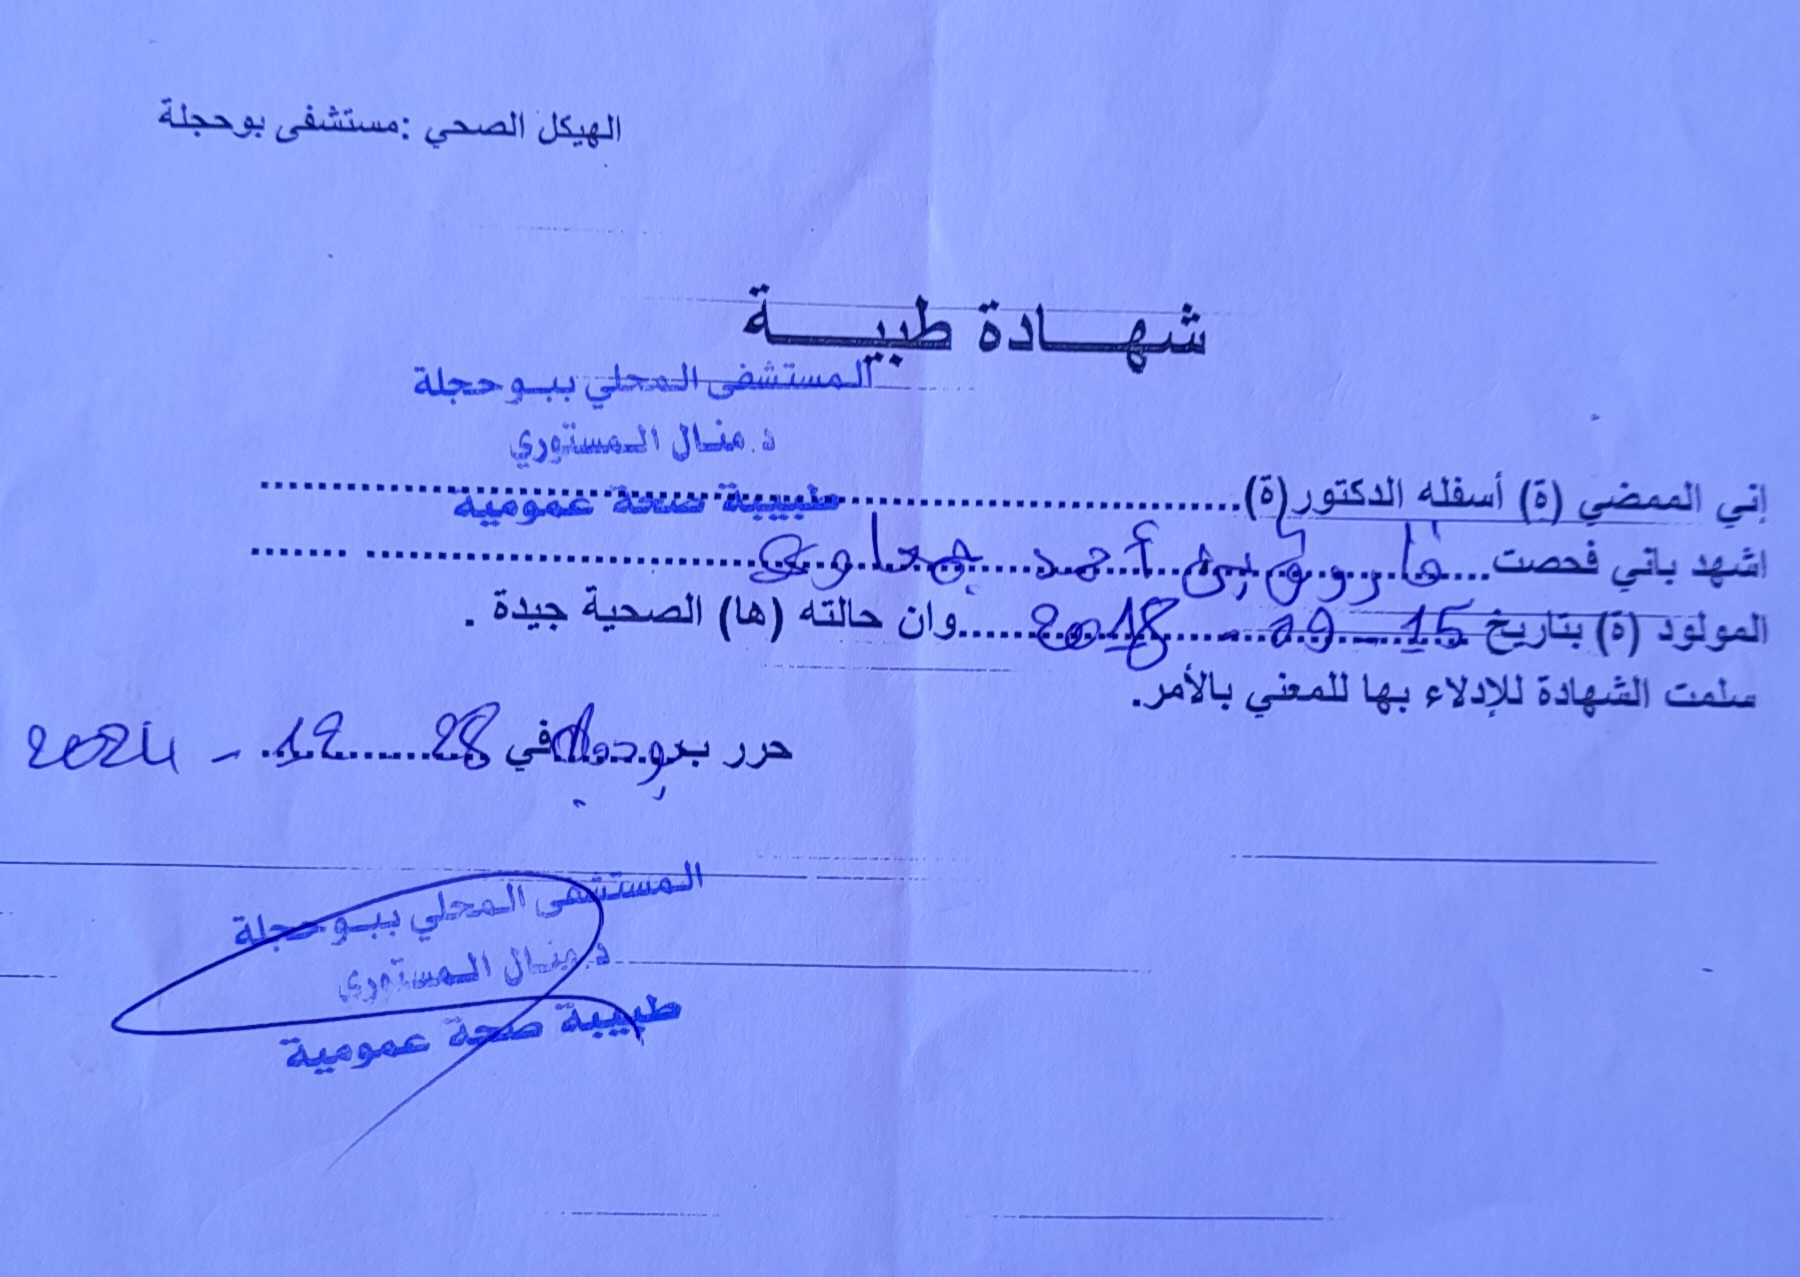 الهيكل الصحي :مستشفى بوحجلة
شهـــــادة طبيـــــة
المستشفى المحلي ببوحجلة
د.منال المستوري
طبيبة صحة عمومية
إني الممضي (ة) أسفله الدكتور(ة)
اشهد باني فحصت فاروق بن أحمد جعلوي
المولود (ة) بتاريخ 15 - 09 - 2018 وان حالته (ها) الصحية جيدة .
سلمت الشهادة للإدلاء بها للمعني بالأمر.
حرر ببوحجلة في 28 12 - 2024
المستشفى المحلي ببوحجلة
د.منال المستوري
طبيبة صحة عمومية